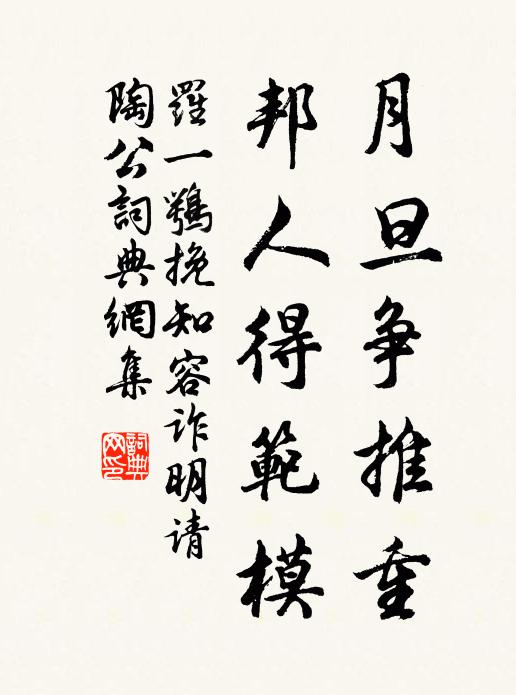 月旦争推重
邦人得範模
羅一鶚挽知容诈明请
陶公詞典網集
詞典网印